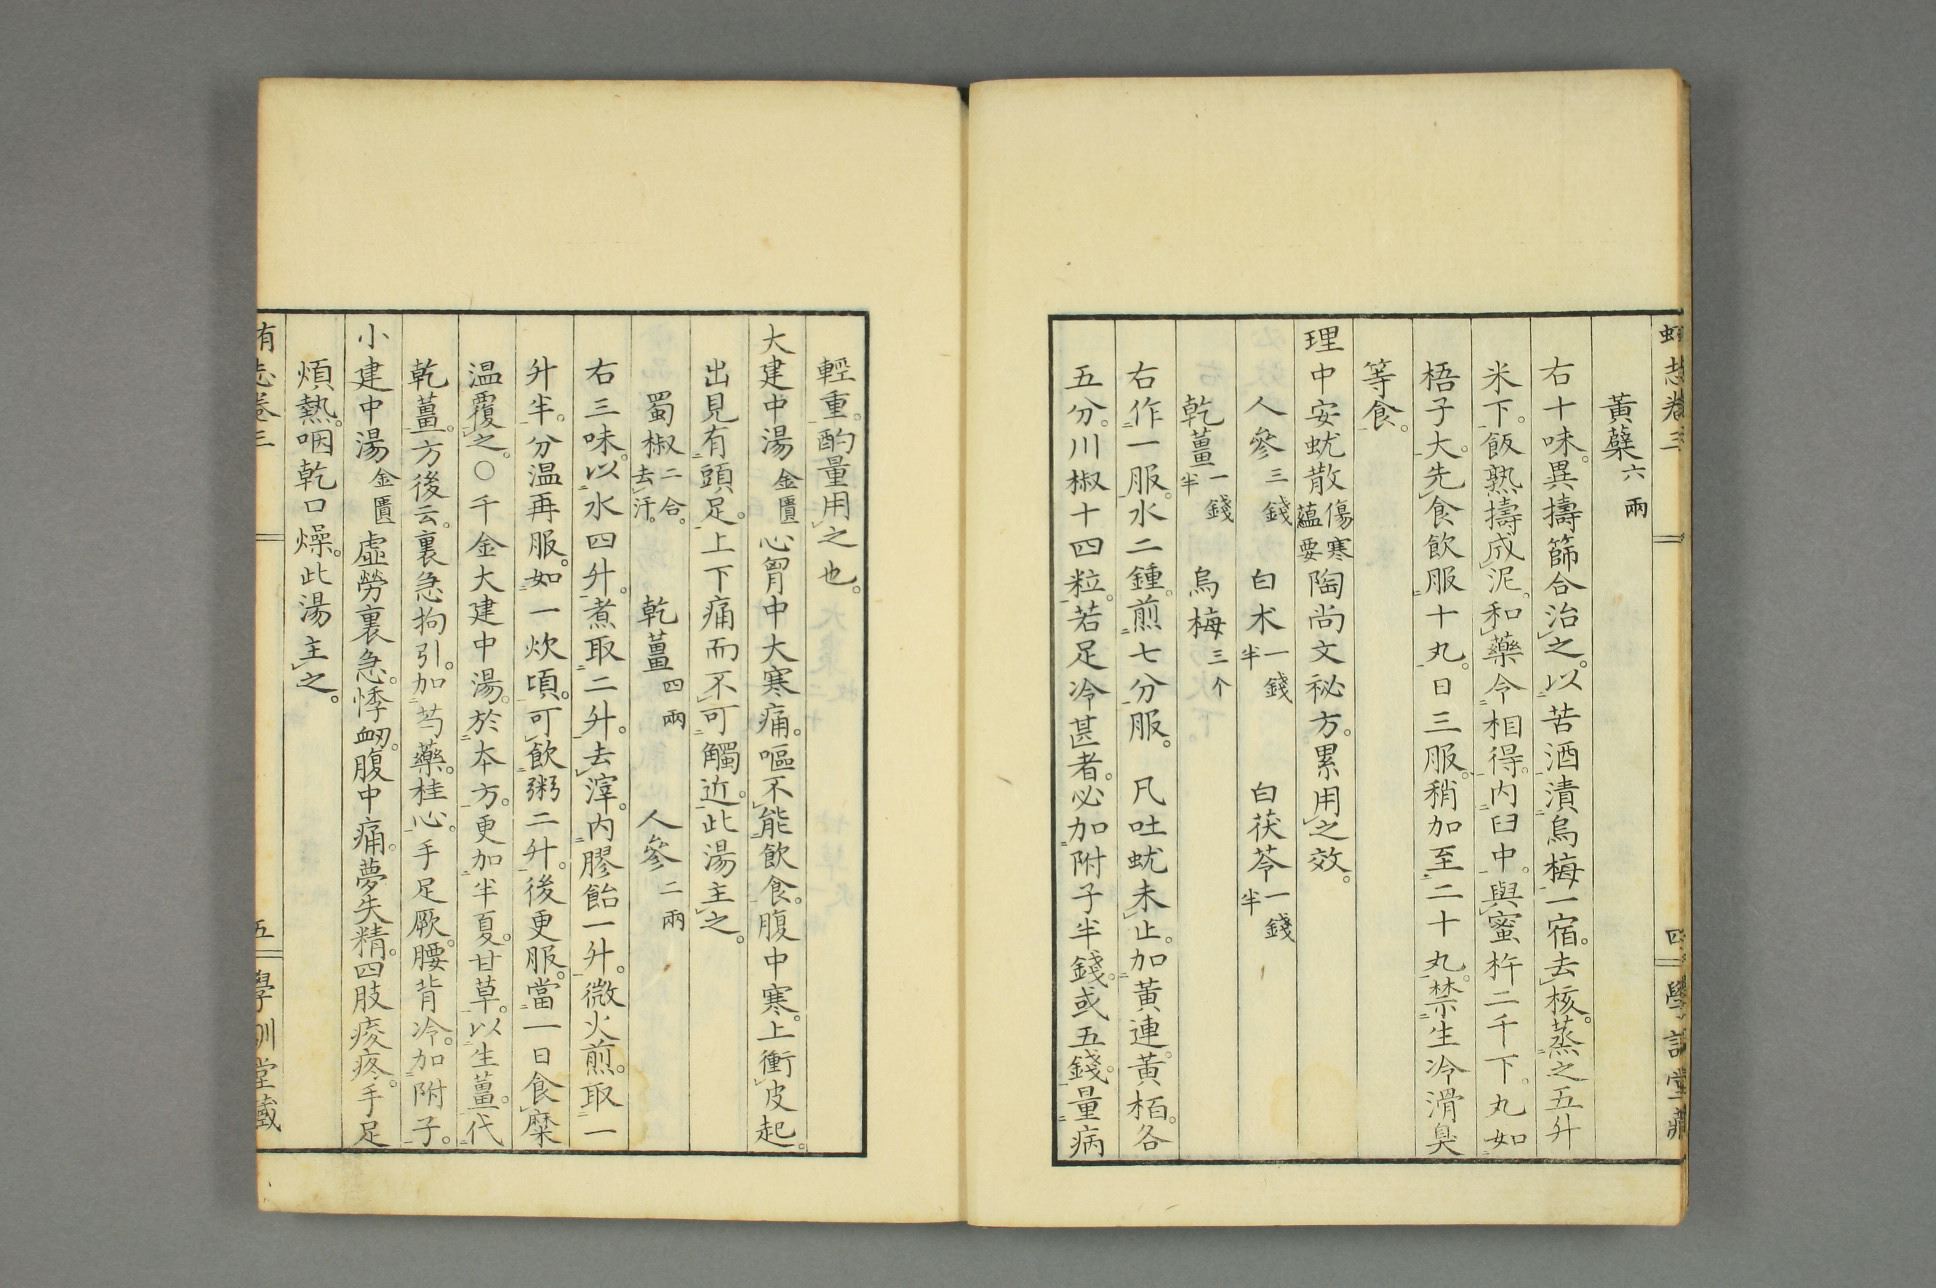 蚘志卷三
四
學訓堂藏
黃蘗六兩
右十味。異擣篩合治之。以苦酒漬烏梅一宿。去核。蒸之五升
米下。飯熟擣成泥。和藥令相得。内臼中。與蜜杵二千下。丸如
梧子大。先食飲服十丸。日三服。稍加至二十丸。禁生冷滑臭
等食。
理中安蚘散傷寒蘊要陶尚文秘方。累用之效。
人參三錢 白朮一錢半 白茯苓一錢半
乾薑一錢半 烏梅三个
右作一服。水二鍾。煎七分服。 凡吐蚘未止。加黃連。黃栢。各
五分。川椒十四粒。若足冷甚者。必加附子半錢。或五錢。量病
輕重。酌量用之也。
大建中湯金匱心胷中大寒痛。嘔不能飲食。腹中寒。上衝皮起。
出見有頭足。上下痛而不可觸近。此湯主之。
蜀椒二合。去汗。 乾薑四兩 人參二兩
右三味。以水四升。煮取二升。去滓。内膠飴一升。微火煎。取一
升半。分温再服。如一炊頃。可飲粥二升。後更服。當一日食糜
温覆之。○千金大建中湯。於本方。更加半夏。甘草。以生薑。代
乾薑。方後云。裏急拘引。加芍藥。桂心。手足厥。腰背冷。加附子。
小建中湯金匱虛勞裏急。悸衂。腹中痛。夢失精。四肢痠疼。手足
煩熱。咽乾口燥。此湯主之。
志卷三
五
學訓堂藏